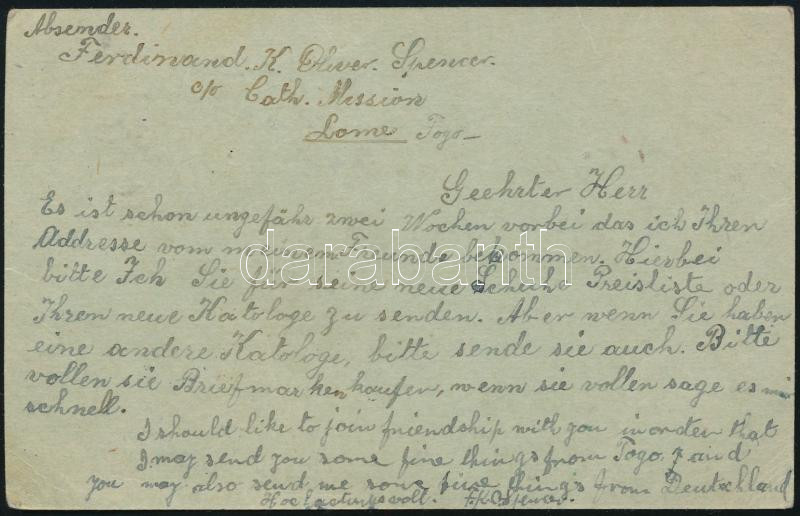 Absender.
Ferdinand. K. Oliver. Spencer.
c/o Cath. Mission
Lome Togo—
Geehrter Herr
Es ist schon ungefähr zwei Wochen vorbei das ich Ihren
Addresse vom meinem Freunde bekommen. Hierbei
darabanth
bitte Ich Sie für seine neue Schuhe Preisliste oder
Ihren neue Katologe zu senden. Aber wenn Sie haben
eine andere Katologe, bitte sende sie auch. Bitte
vollen sie Briefmarken kaufen, wenn sie vollen sage es mir
schnell.
I should like to join friendship with you in orden that
I may send you some fine things from Togo, and
you may also send me some fine things from Deutschland
Hochachtungsvolt. F.K.O. Spencer.